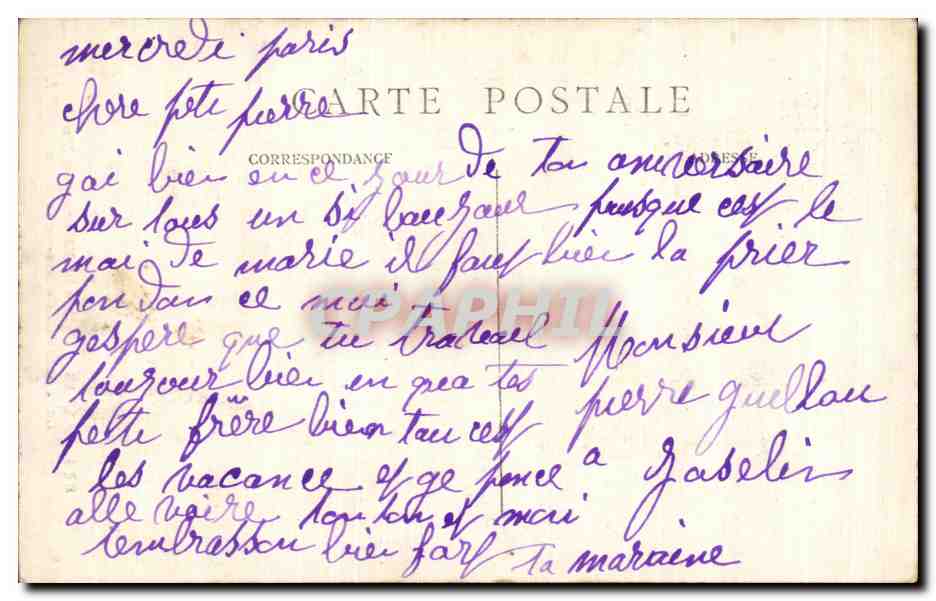 mercredi paris
chere peti pierre
CARTE POSTALE
CORRESPONDANCE
ADRESSE
gai bien en ce jour de ton aniversaire
sur tous un si bau jour pusque cest le
moi de marie il faut bien la prier
pendan ce moi
gespere que tu travail
toujour bien en
petit frère bien tau cest
les vacance et ge pence a
alle voire tonton et moi
tembrasson bien fort ta maraine
Monsieur
pierre guillou
Josselin
CPAPHIL